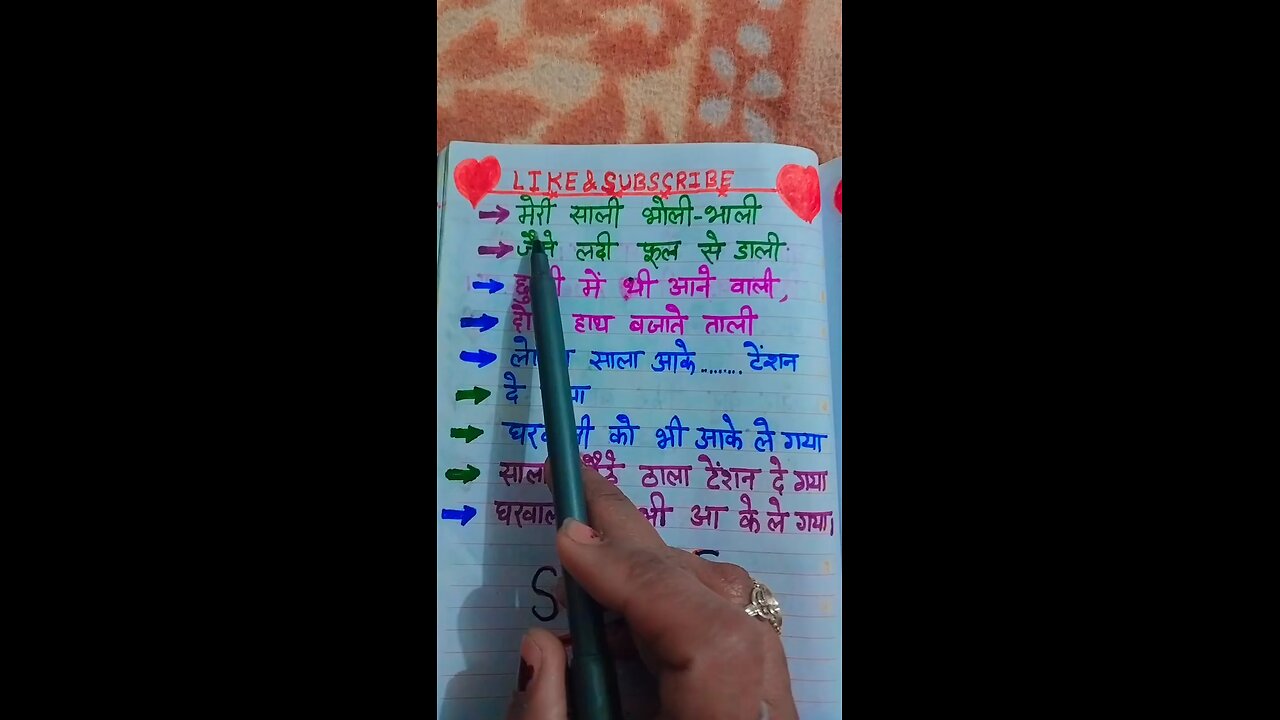 LIKE & SUBSCRIBE
मेरी साली भोली-भाली
जैसे लदी फूल से डाली
में थी आने वाली,
हाथ बजाते ताली
साला आके........ टेंशन
दे
को भी आके ले गया
ठाला टेंशन दे गया
भी आ के ले गया।
S